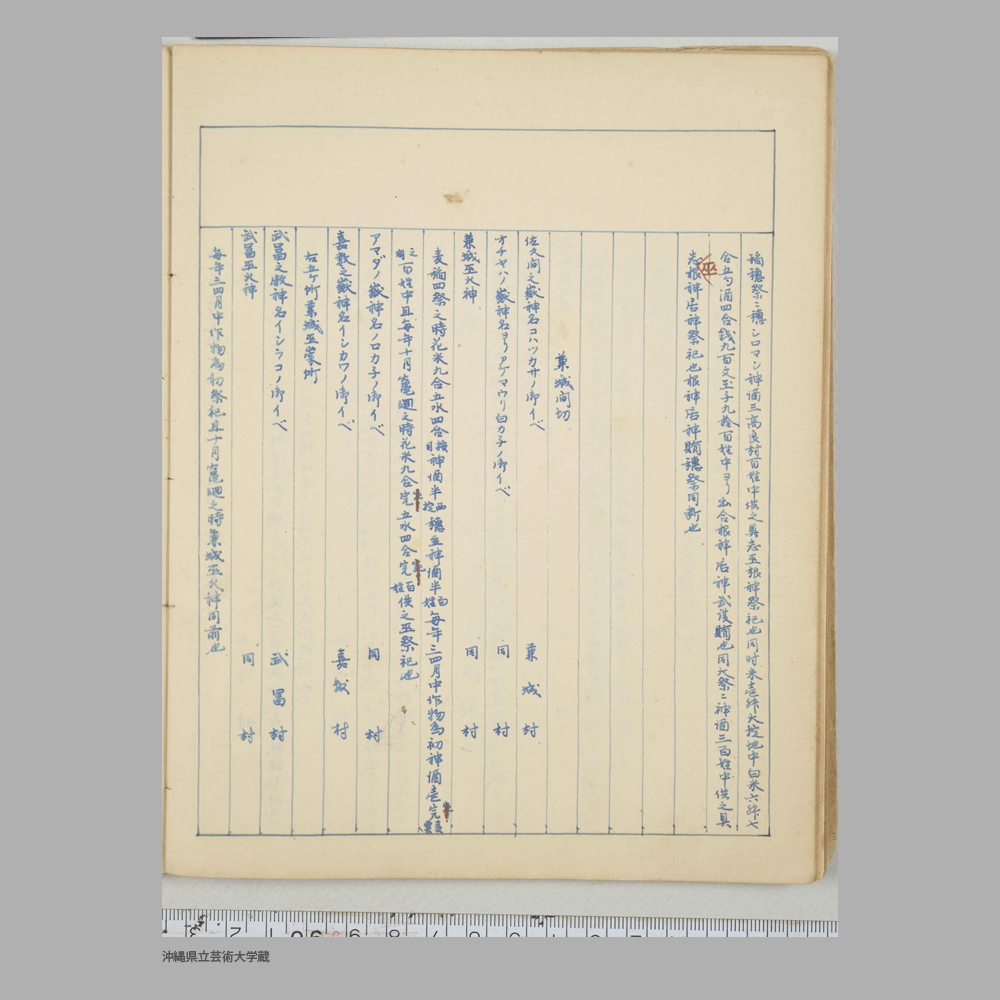 稲穂祭ニ穂シロマシ神酒三高良村百姓中供之真志五根神祭祀也同時米壱舛大掟地中白米六舛七
合五勺酒四合銭九百文玉子九拾百姓中ヨリ出合根神居神武没賄也同大祭ニ神酒三百姓中供之具
巫
志根神居神祭祀也根神居神賄穂祭同断也
兼城間切
佐久間之嶽神名コハツカサノ御イベ 兼城村
オチヤハノ嶽神名ヨリアゲマウリ白カ子ノ御イベ 同村
兼城巫火神 同村
麦稲四祭之時花米九合五水四合神酒半 穂並神酒半百姓毎年三四月中作物為初神酒壱完
百姓中且毎年十月竃廻之時花米九合完五水四合完百姓供之巫祭祀也
アマダノ嶽神名ノロカ子ノ御イベ 同村
嘉数之嶽神名イシカワノ御イベ 嘉数村
右五ケ所兼城巫崇所
武冨之殿神名イシラコノ御イベ 武冨村
武冨巫火神 同村
毎年三四月中作物為初祭祀且十月竃廻之時兼城巫火神同前也
沖縄県立芸術大学蔵